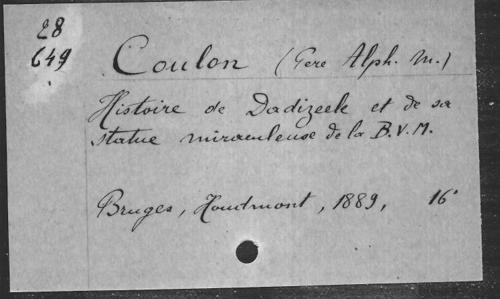 28
649
Coulon (Père Alph. M.)
Histoire de Dadizeele et de sa
statue miraculeuse de la B.V.M.
Bruges, Houdmont, 1889, 16°